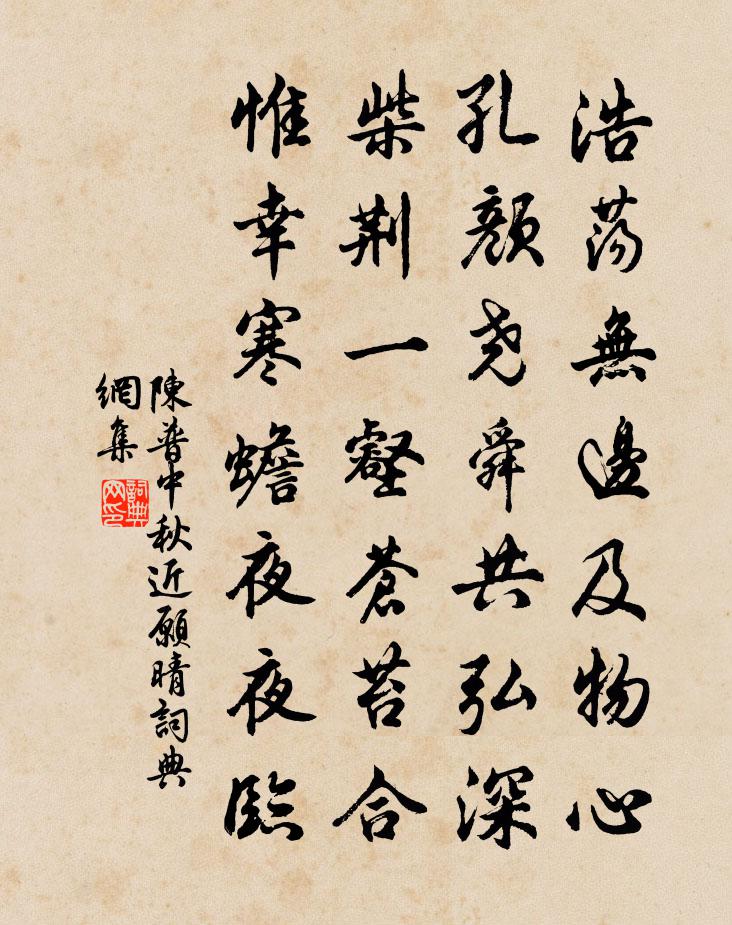 浩蕩無邊及物心
孔顏堯舜共弘深
柴荆一壑蒼苔合
惟幸寒蟾夜夜臨
陳普中秋近願晴詞典
網集
詞典
网印